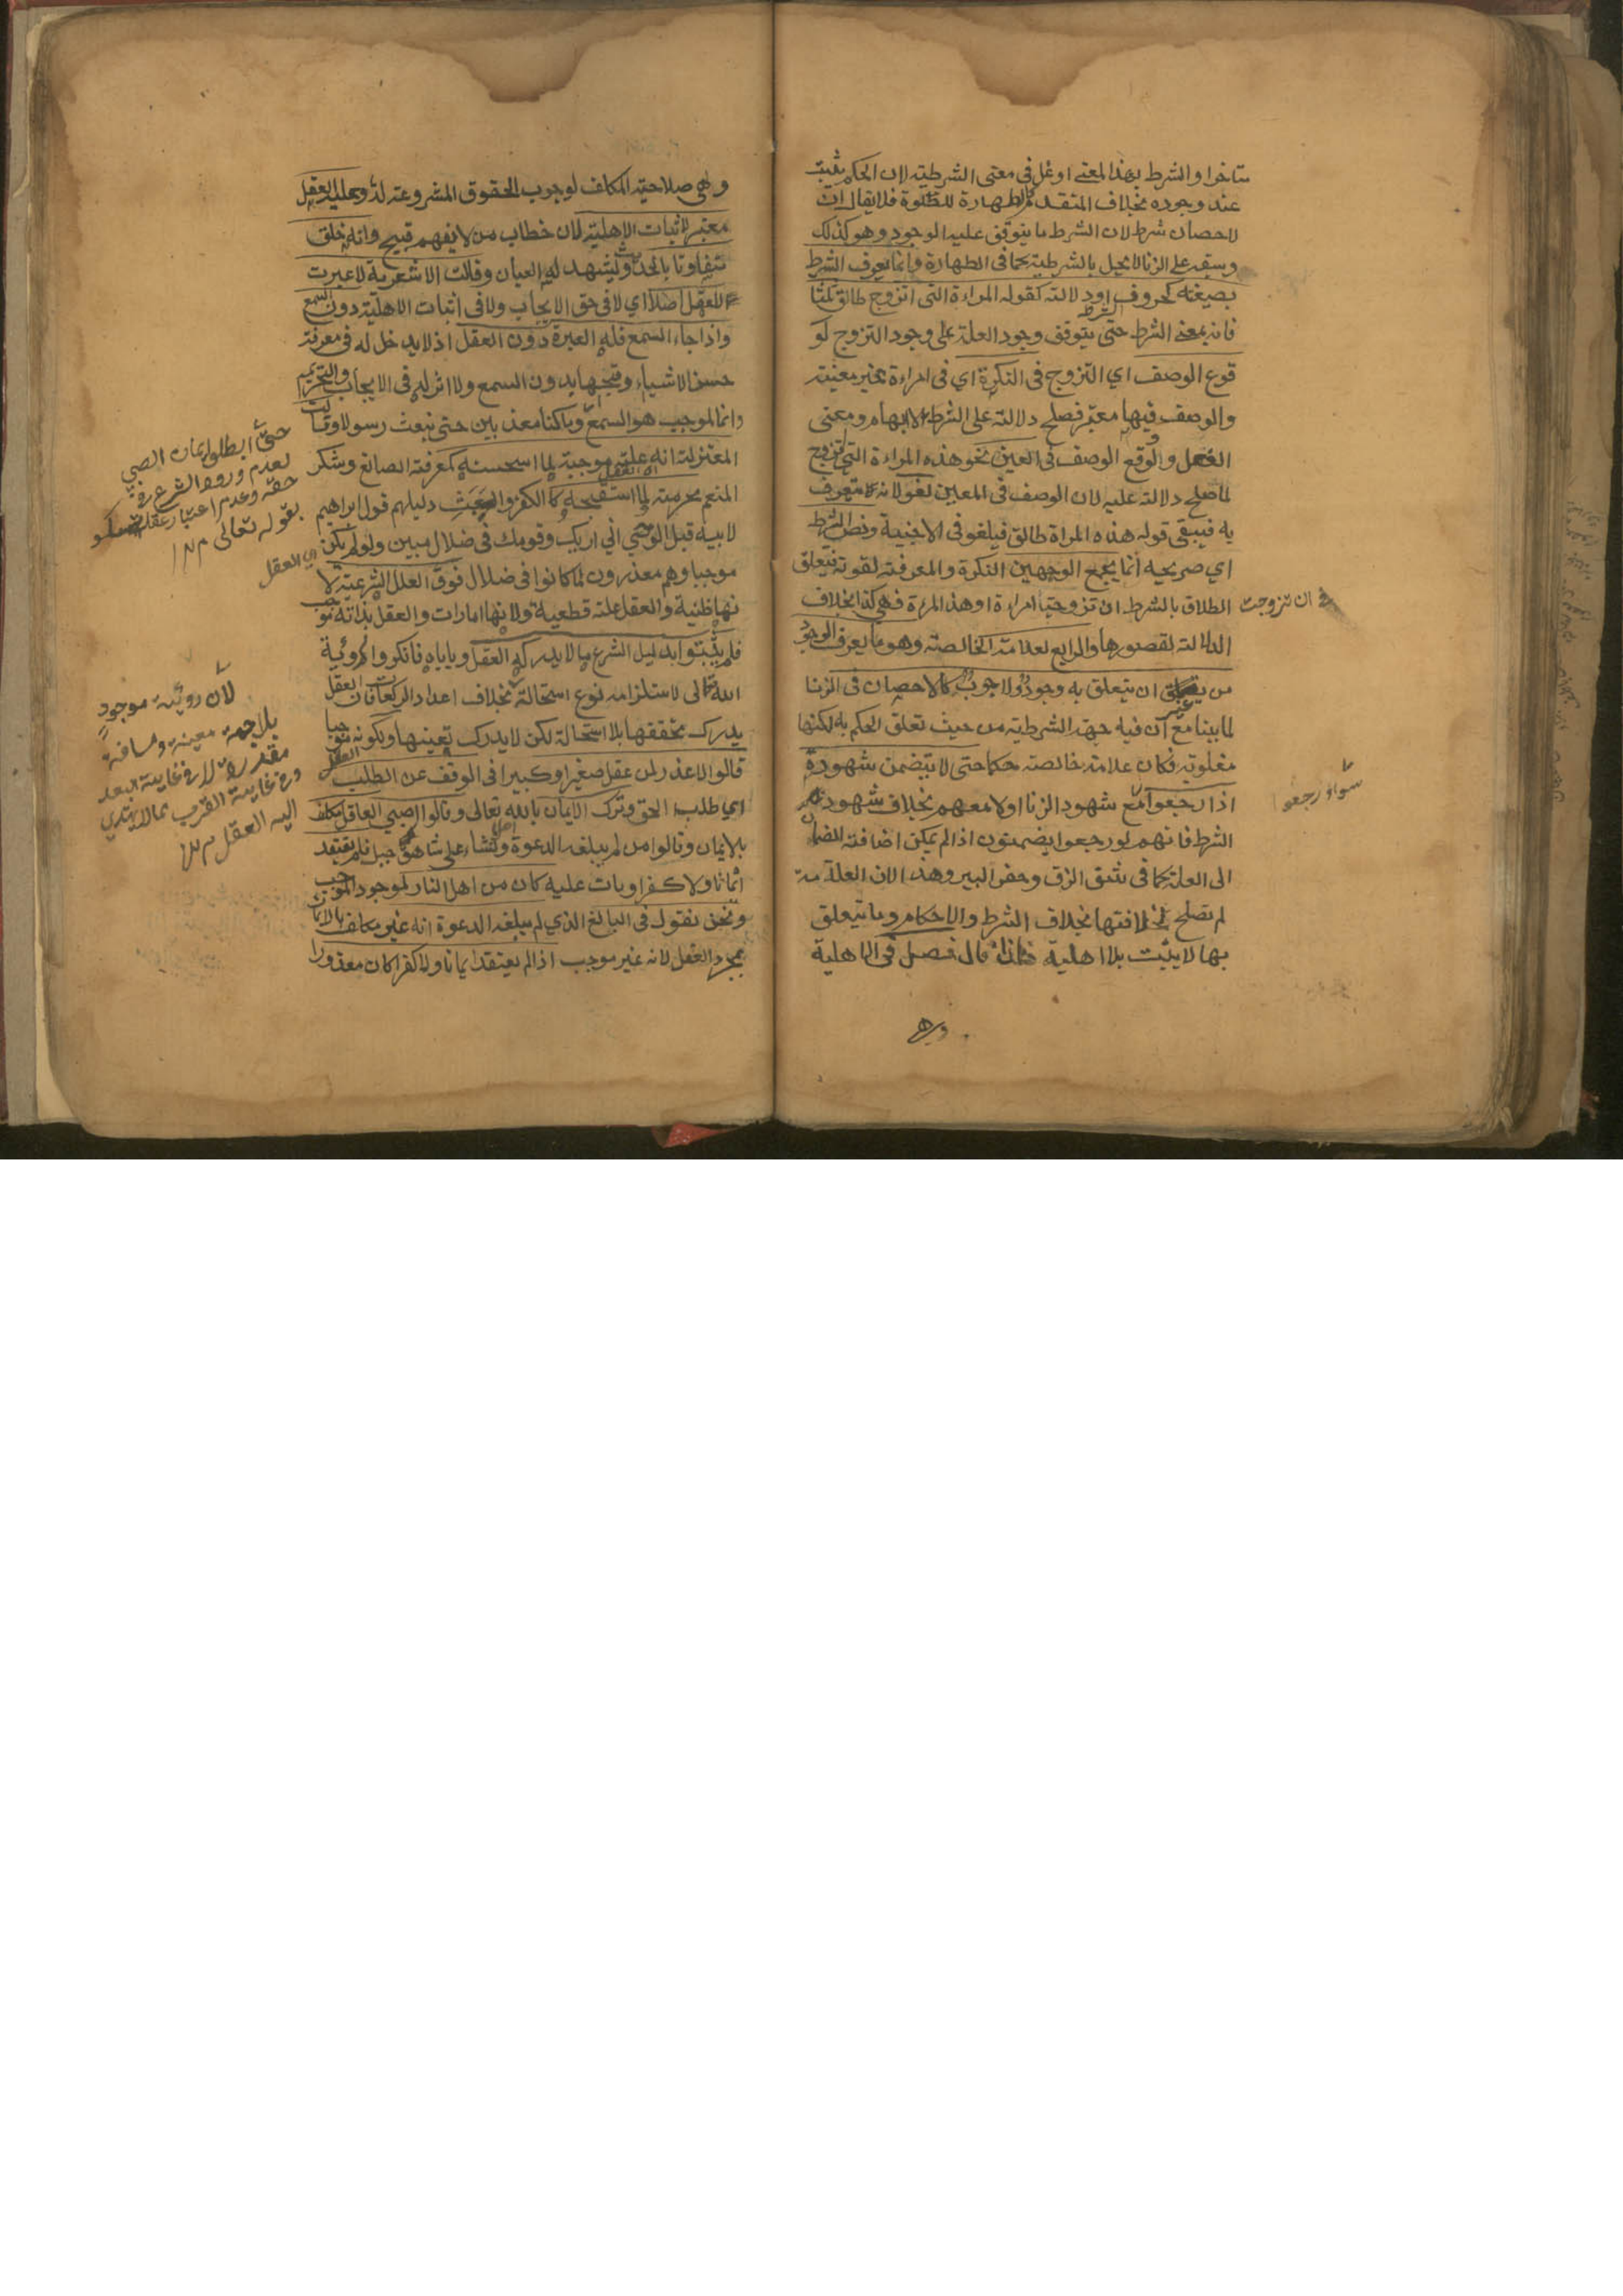 متاخرا والشرط بهذا المعنى اوغل في معنى الشرطية لان الحكم يثبت
عند وجوده بخلاف المتقدم كالطهارة للصلوة فلا يقال ان
لاحصان شرط لان الشرط ما يتوقف عليه الوجود وهو كذلك
وسبقه على الزنا لا يخل بالشرطية كما في الطهارة وانما يعرف الشرط
بصيغته كحروف الشرط او دلالته كقوله المراءة التي اتزوج طالق ثلثا
فانه بمعنى الشرط حتى يتوقف وجود العلة على وجود التزوج لو
قوع الوصف اي التزوج في النكرة اي في امراءة غير معينة
والوصف فيها معتبر فصلح دلالة على الشرط لابهام ومعنى
الفعل ولو وقع الوصف في العين نحو هذه المراءة التي تزوج
لما صلح دلالة عليه لان الوصف في المعين لغو لانه لا يتعرف
به فيبقى قوله هذه المراة طالق فيلغو في الاجنبية ونص الشرط
اي صريحه انما يجمع الوجهين النكرة والمعرفة لقوته فيتعلق
الطلاق بالشرط ان تزوجت امراءة او هذه المرءة فهي كذا بخلاف
ان تزوجت
الدلالة لقصورها والرابع لعلامة الخالصة وهو ما يعرف الوجود
من غير ان يتعلق به وجود ولا وجوب كالاحصان في الزنا
لما بينا مع ان فيه جهة الشرطية من حيث تعلق الحكم به لكنها
مغلوبة فكان علامة خالصة حكما حتى لا يتضمن شهوده
اذا رجعوا مع شهود الزنا اولا معهم بخلاف شهود
سواء رجعوا
الشرط فانهم لو رجعوا يضمنون اذا لم يمكن اضافة الضمان
الى العلة كما في شق الزق وحفر البير وهذا لان العلامة
لم تصلح لخلافتها بخلاف الشرط والاحكام وما يتعلق
بها لا يثبت بلا اهلية فلذا قال فصل في الاهلية
وهي
وهي صلاحية المكلف لوجوب الحقوق المشروعة له وعليه العقل
معتبر لاثبات الاهلية لان خطاب من لا يفهم قبيح وانه خلق
متفاوتا بالحديث وليشهد له العيان وقالت الاشعرية لا عبرت
للعقل اصلا اي لا في حق الايجاب ولا في اثبات الاهلية دون السمع
واذا جاء السمع فله العبرة دون العقل اذ لا يدخل له في معرفة
حسن الاشياء وقبحها بدون السمع ولا اثر له في الايجاب والتحريم
وانما الموجب هو السمع وما كنا معذبين حتى نبعث رسولا وقالت
المعتزلة انه علة موجبة لما استحسنه كمعرفة الصانع وشكر
المنعم محرمة لما استقبحه العقل كالكفر والعبث دليلهم قول ابراهيم
لابيه قبل الوحي اني اريك وقومك في ضلال مبين ولو لم يكن
اي العقل
موجبا وهم معذرون لما كانوا في ضلال فوق العلل الشرعية لا
نها ظنية والعقل علة قطعية ولانها امارات والعقل بذاته موجب
فلم يثبتوا بدليل الشرع ما لا يدركه العقل وياباه فانكروا روئية
الله تعالى لاستلزامه نوع استحالة بخلاف اعداد الركعات فان العقل
يدرك تحققها بلا استحالة لكن لا يدرك تعينها ولكونه موجبا
قالوا لا عذر لمن عقل صغيرا وكبيرا في الوقف عن الطلب
اي طلب الحق وترك الايمان بالله تعالى وقالوا الصبي العاقل مكلف
بالايمان وقالوا من لم يبلغه الدعوة اصلا ونشاء على شاهق جبل فلم يعتقد
ايمانا ولا كفرا ومات عليه كان من اهل النار لموجود الموجب
ونحن نقول في البالغ الذي لم يبلغه الدعوة انه غير مكلف بالايمان
بمجرد العقل لانه غير موجب اذا لم يعتقد ايمانا ولا كفرا كان معذورا
حتى ابطلوا ايمان الصبي
لعدم ورود الشرع في
حقه وعدم اعتبار عقله تمسكو
بقوله تعالى
لان روئية موجود
بلا جهة معينة ومسافة
مقدرة لا في غاية البعد
ولا في غاية القرب مما لا يهتدي
اليه العقل